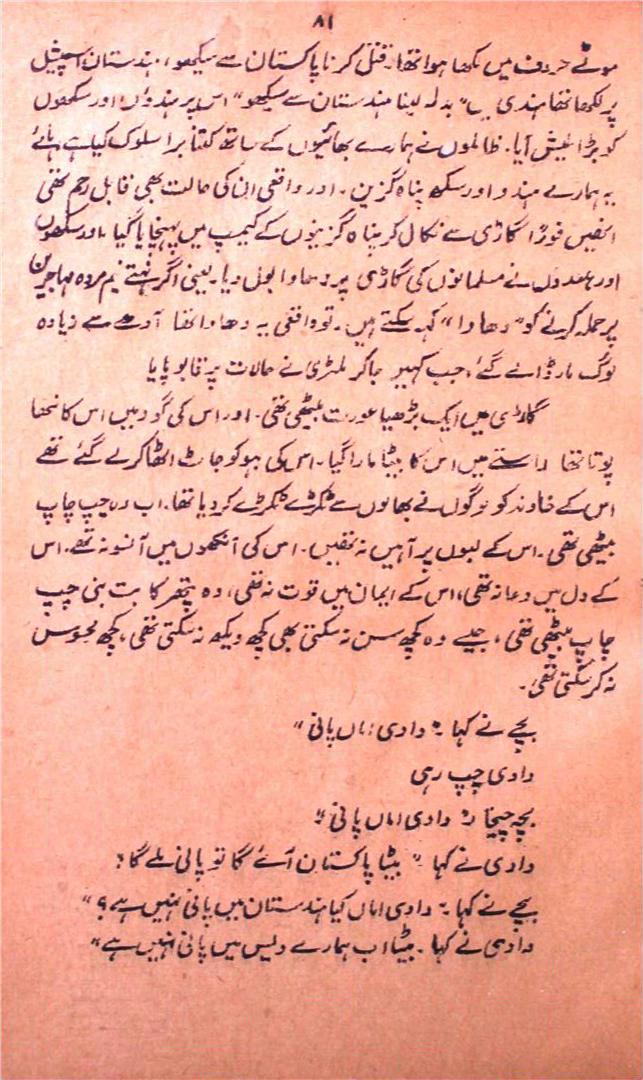 ۸۱
موٹے حروف میں لکھا ہوا تھا۔ قتل کرنا پاکستان سے سیکھو، ہندستان اسپیشل
پر لکھا تھا ہندی میں " بدلہ لینا ہندستان سے سیکھو" اس پر ہندوؤں اور سکھوں
کو بڑا طیش آیا۔ ظالموں نے ہمارے بھائیوں کے ساتھ کتنا برا سلوک کیا ہے ہائے
یہ ہمارے ہندو اور سکھ پناہ گزین۔ اور واقعی ان کی حالت بھی قابل رحم تھی
انھیں فوراً گاڑی سے نکال کر پناہ گزینوں کے کیمپ میں پہنچایا گیا، اور سکھوں
اور ہندوں نے مسلمانوں کی گاڑی پر دھاوا بول دیا۔ یعنی اگر نہتے نیم مردہ مہاجرین
پر حملہ کرنے کو" دھاوا " کہہ سکتے ہیں۔ تو واقعی یہ دھاوا تھا آدھے سے زیادہ
لوگ مار ڈالے گئے، جب کہیں جا کر ملٹری نے حالات پہ قابو پایا
گاڑی میں ایک بڑھیا عورت بیٹھی تھی۔ اور اس کی گود میں اس کا ننھا
پوتا تھا راستے میں اس کا بیٹا مارا گیا۔ اس کی بہو کو جاٹ اٹھا کر لے گئے تھے
اس کے خاوند کو لوگوں نے بھالوں سے ٹکڑے ٹکڑے کر دیا تھا۔ اب وہ چپ چاپ
بیٹھی تھی۔ اس کے لبوں پر آہیں نہ تھیں۔ اس کی آنکھوں میں آنسو نہ تھے۔ اس
کے دل میں دعا نہ تھی، اس کے ایمان میں قوت نہ تھی، وہ پتھر کا بت بنی چپ
چاپ بیٹھی تھی، جیسے وہ کچھ سن نہ سکتی تھی کچھ دیکھ نہ سکتی تھی، کچھ محسوس
نہ کر سکتی تھی۔
بچے نے کہا۔" دادی اماں پانی"
دادی چپ رہی
بچہ چیخا۔" دادی اماں پانی"
دادی نے کہا " بیٹا پاکستان آئے گا تو پانی ملے گا"
بچے نے کہا۔" دادی اماں کیا ہندستان میں پانی نہیں ہے؟"
دادی نے کہا۔ بیٹا اب ہمارے دیس میں پانی نہیں ہے"